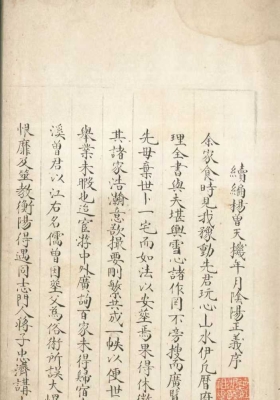 續編楊曾天機年月陰陽正義序
余家食時見我豫動先君玩心山水伊凡曆府
理全書與夫堪輿雪心諸作罔不旁搜而廣覽
先母棄世卜一宅而如法以安塟焉果得休徵
其諸家浩瀚意欲撮要刪繁共成一帙以便世
舉業未暇也迨宦蔣中外廣詢百家未得歸皆
溪曾君以江右名儒曽因塟父為俗術所誤大
恨靡及筮教衡陽得遇同志門人蔣子忠濟講